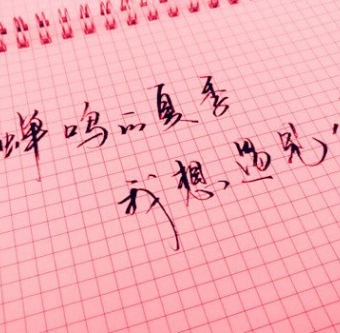 蝉鸣的夏季
我想遇见